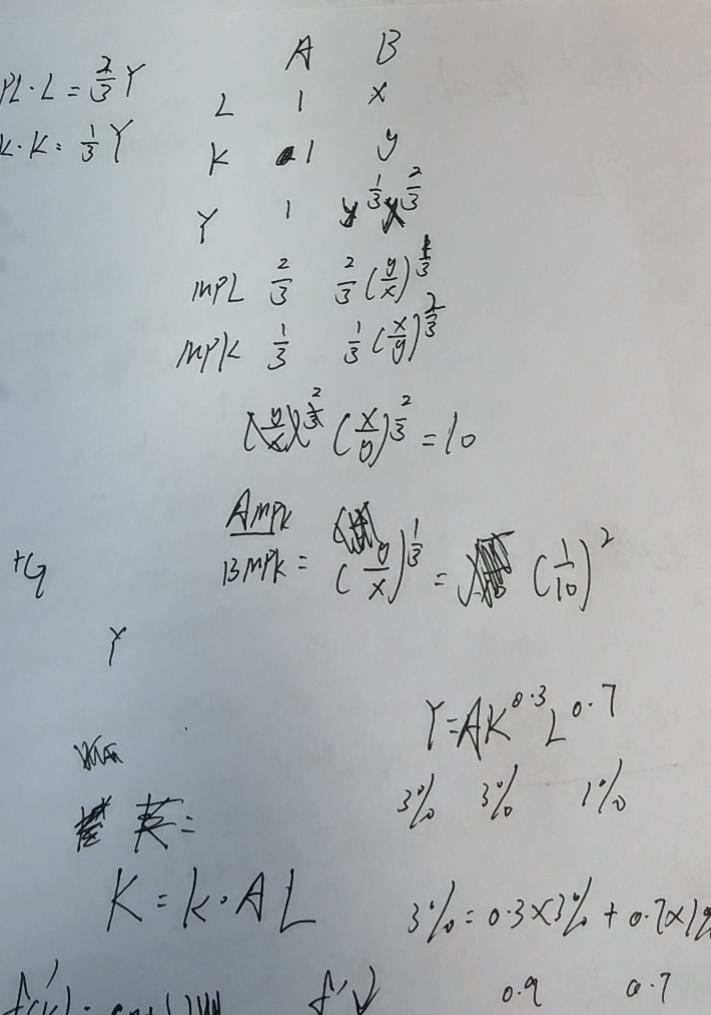 A B
PL·L = 2/3 Y
L 1 x
K·K = 1/3 Y
K 1 y
Y 1 y^(1/3) x^(2/3)
MPL 2/3 2/3 (y/x)^(1/3)
MPK 1/3 1/3 (x/y)^(2/3)
(x/y)^(2/3) = 10
AMPK
BMPK = (y/x)^(1/3) = (1/10)^2
+G
Y
Y=AK^0.3 L^0.7
3% 3% 1%
K =
K = k·AL
3% = 0.3×3% + 0.7×1%
f'↓
0.9 0.7